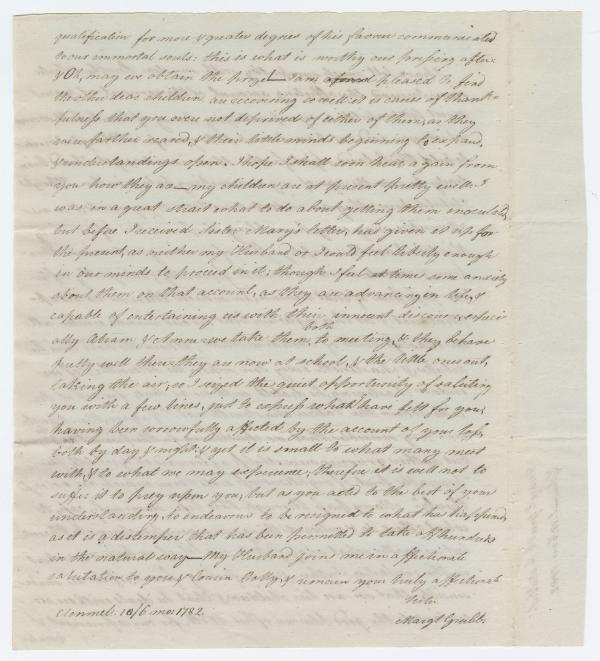 qualification for more & greater degrees of his favour communicated
to our immortal souls: this is what is worthy our pressing after
& Oh, may we obtain the prize! I am pleased to find
the other dear children are recovering so well it is cause of thank=
fulness that you were not deprived of either of them, as they
were farther reared, & their little minds beginning to expand,
& understandings open, I hope I shall soon hear again from
you how they do — my children are at present pretty well. I
was in a great strait what to do about getting them inoculated,
but before I received Sister Mary's letter, has given it up for
the present, as neither my Husband or I could feel liberty enough
in our minds to proceed in it; though I feel at times some anxiety
about them on that account, as they are advancing in life, &
capable of entertaining us with their innocent discourse, especi
ally Abram, & Anne we take them both to meeting, & they behave
pretty well there they are now at school, & the little ones out,
taking the air, so I seized the quiet opportunity of saluting
you with a few lines, just to express what I have felt for you,
having been sorrowfully affected by the account of your loss,
both by day & night: & yet it is small to what many meet
with, & to what we may experience, therefore it is well not to
suffer it to prey upon you, but as you acted to the best of your
understanding, to endeavour to be resigned to what has happened,
as it is a distemper that has been permitted to take off hundreds
in the natural way — My Husband joins me in affectionate
salutation to you, & Cousin Polly, & remain your truly affectionate
Sister
Clonmel. 18/6 mo: 1782.
Margt Grubb